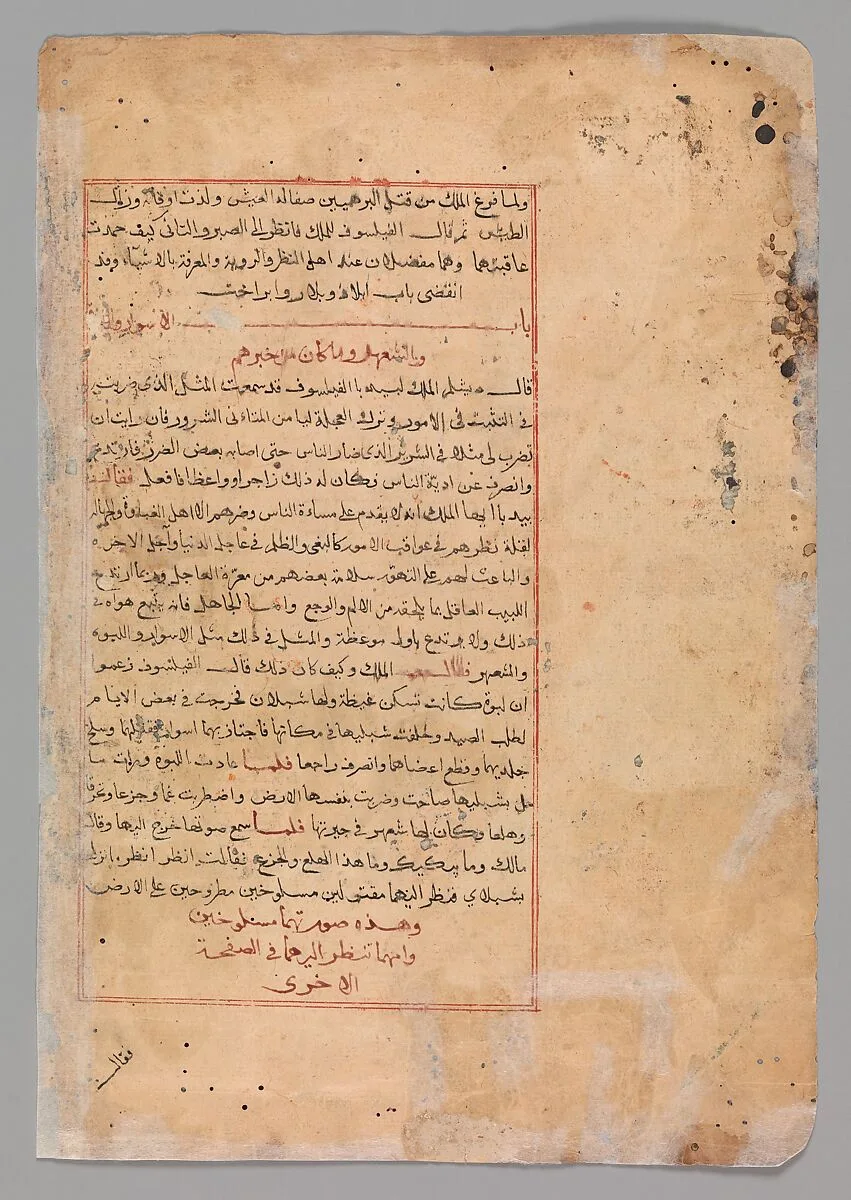 ولما فرغ الملك من قتل البرهميين صفا له العيش ولذت اوقاته وزال
الطيش ثم قال الفيلسوف للملك فانظر الى الصبر والتاني كيف حمدت
عاقبتهما وهما مفضلان عند اهل النظر والروية والمعرفة بالاشياء وقد
انقضى باب ابلاد وبلار وابراخت
باب الاسوار واللبوة
والشعهر وما كان من خبرهم
قال ديشلم الملك لبيدبا الفيلسوف قد سمعت المثل الذي ضربت
في التثبت في الامور وترك العجلة ليا من المتاءنى الشرور فان رايت ان
تضرب لى مثلا في الشرير الذى ضار الناس حتى اصابه بعض الضرر فارتدع
وانصرف عن اذية الناس فكان له ذلك زاجرا وواعظا فافعل فقال
بيدبا ايها الملك انه لا يقدم على مساءة الناس وضرهم الا اهل الغباوة والجهالة
لقلة نظرهم في عواقب الامور كالبغى والظلم في عاجل الدنيا وآجل الاخره
والباعث لهم على التهور سلامة بعضهم من معرة العاجل وربما ارتدع
اللبيب العاقل بما يلحقه من الالم والوجع واما الجاهل فانه يتبع هواه في
ذلك ولا يرتدع باول موعظة والمثل في ذلك مثل الاسوار واللبوه
والشعهر فقال الملك وكيف كان ذلك قال الفيلسوف زعموا
ان لبوة كانت تسكن غيظة ولها شبلان فخرجت في بعض الايام
لطلب الصيد وخلفت شبليها في مكانها فاجتاز بهما اسوار فقتلهما وسلخ
جلديهما وقطع اعضاهما وانصرف راجعا فلما عادت اللبوة ورات ما
حل بشبليها صاحت وضربت بنفسها الارض واضطربت غما وجزعا
وهلعا وكان لها شعهر في جيرتها فلما سمع صوتها خرج اليها وقال
مالك وما يبكيك وما هذا الهلع والجزع فقالت انظر انظر انزل
بشبلاي فنظر اليهما مقتولين مسلوخين مطروحين على الارض
وهذه صورتهما مسلوخين
وامهما تنظر اليهما في الصفحة
الاخرى
فقال